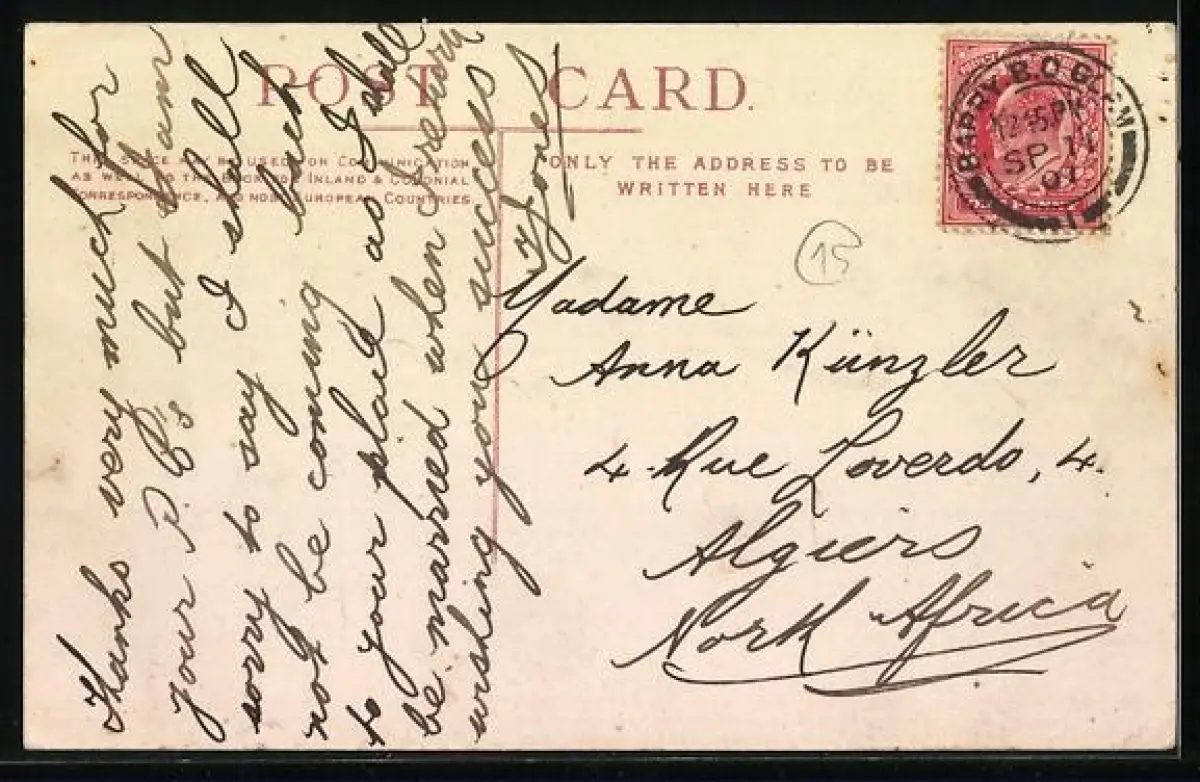 POST CARD.
THIS SPACE MAY BE USED FOR COMMUNICATION
AS WELL AS THE INLAND & COLONIAL
CORRESPONDENCE, AND EUROPEAN COUNTRIES.
ONLY THE ADDRESS TO BE
WRITTEN HERE
BARRY B.O GLAM
12 15 PM
SP 11
07
1
15
Thanks very much for
your P.C's but I am
sorry to say I shall
not be coming back
to your place as I shall
be married when I return
wishing you success
Madame
Anna Künzler
4. Rue Loverdo, 4.
Algiers
North Africa